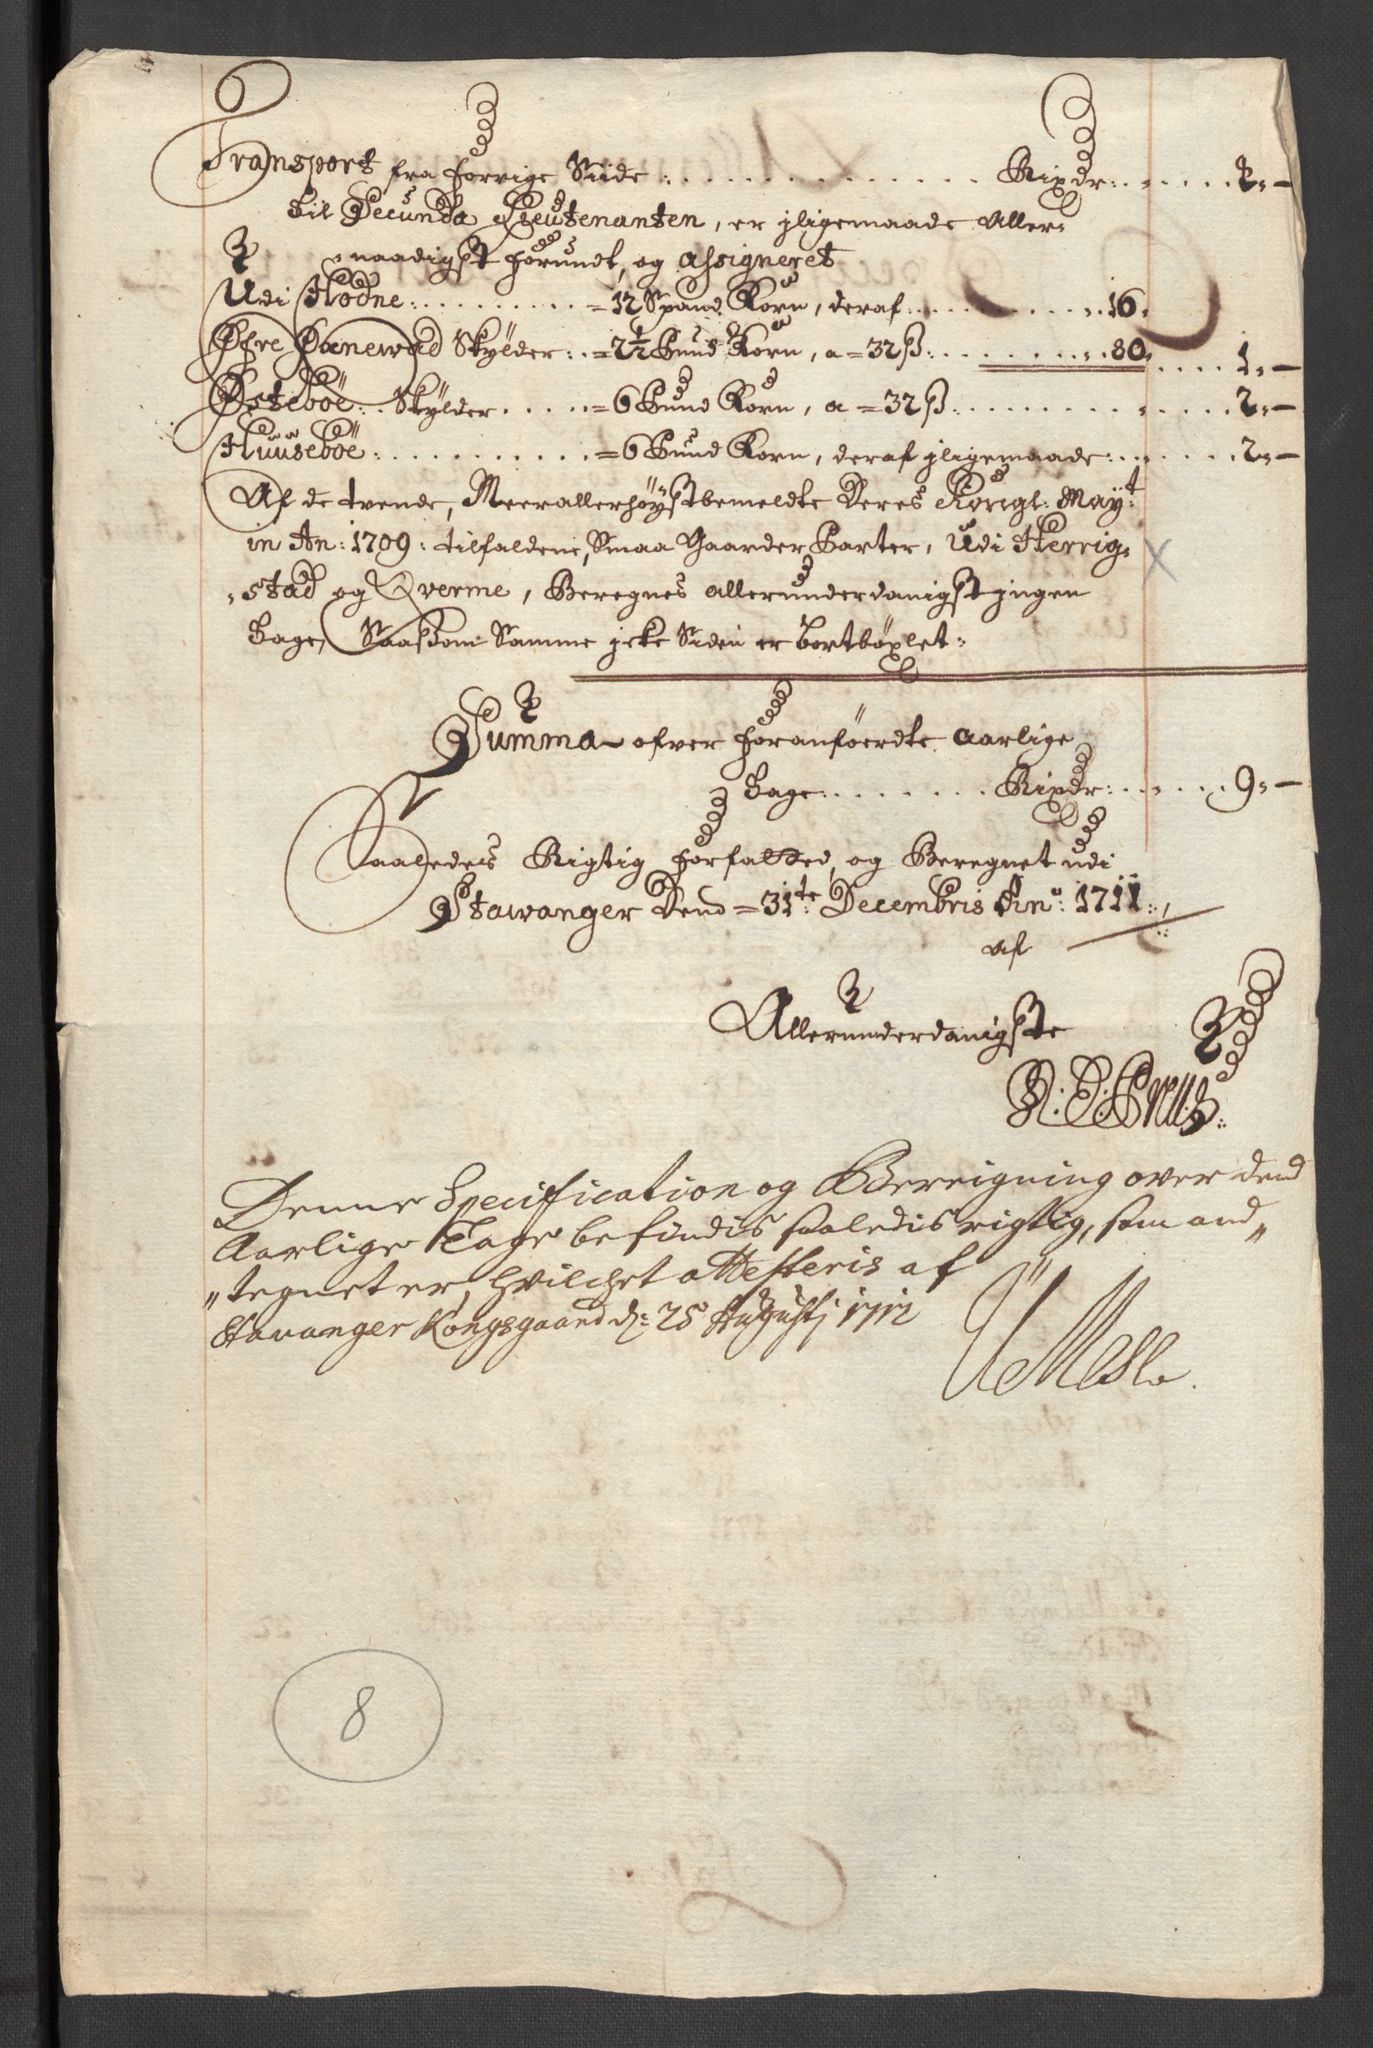 Transport fra forrige Siide: . . . . . . . . . . . . . Rixdr: . . . . . . . 2 = —
til Secunda Lieutenanten, er jligemaade Aller=
=naadigst forundt, og assigneret
Udi Hodne: . . . . . . . . . = 12 Spand Korn, deraf . . . . . . . . . 16.
Øfre Qvanewad Skylder: . = 2½ Pund Korn, a = 32 ß: . . . . . . . . 80. . . . . 1 = —
Østeböe: . Skylder . . . . . = 6 Pund Korn, a = 32 ß: . . . . . . . . . . . . . 2 = —
Huuseböe: . . . . . . . . . . = 6 Pund Korn, deraf jligemaade: . . . . . . 2 = —
Af de tvende, Meerallerhöystbemeldte Deres Kongl: Mayt:
in An: 1709: tilfaldene, Smaa Gaarder Parter, Udi Herrig=
=stad og Qverme, Beregnes allerunderdanigst jngen
Tage, Saasom Samme jcke Siden er bortböxlet:
Summa ofver foranföerdte aarlige
Tage: . . . . . . . Rixdr: . . . . . . 9 = —
Saaledes Rigtig forfatted, og Beregnet udi
Stawanger Dend = 31te: Decembris Ano: 1711:
af
Allerunderdanigste
Denne Specification og Bereigning over dend
Aarlige Tage befindis saaledis rigtig, som and„
„tegnet er, hvilchet attesteris af
Stavanger Kongsgaard d: 25 Augustj 1712
8